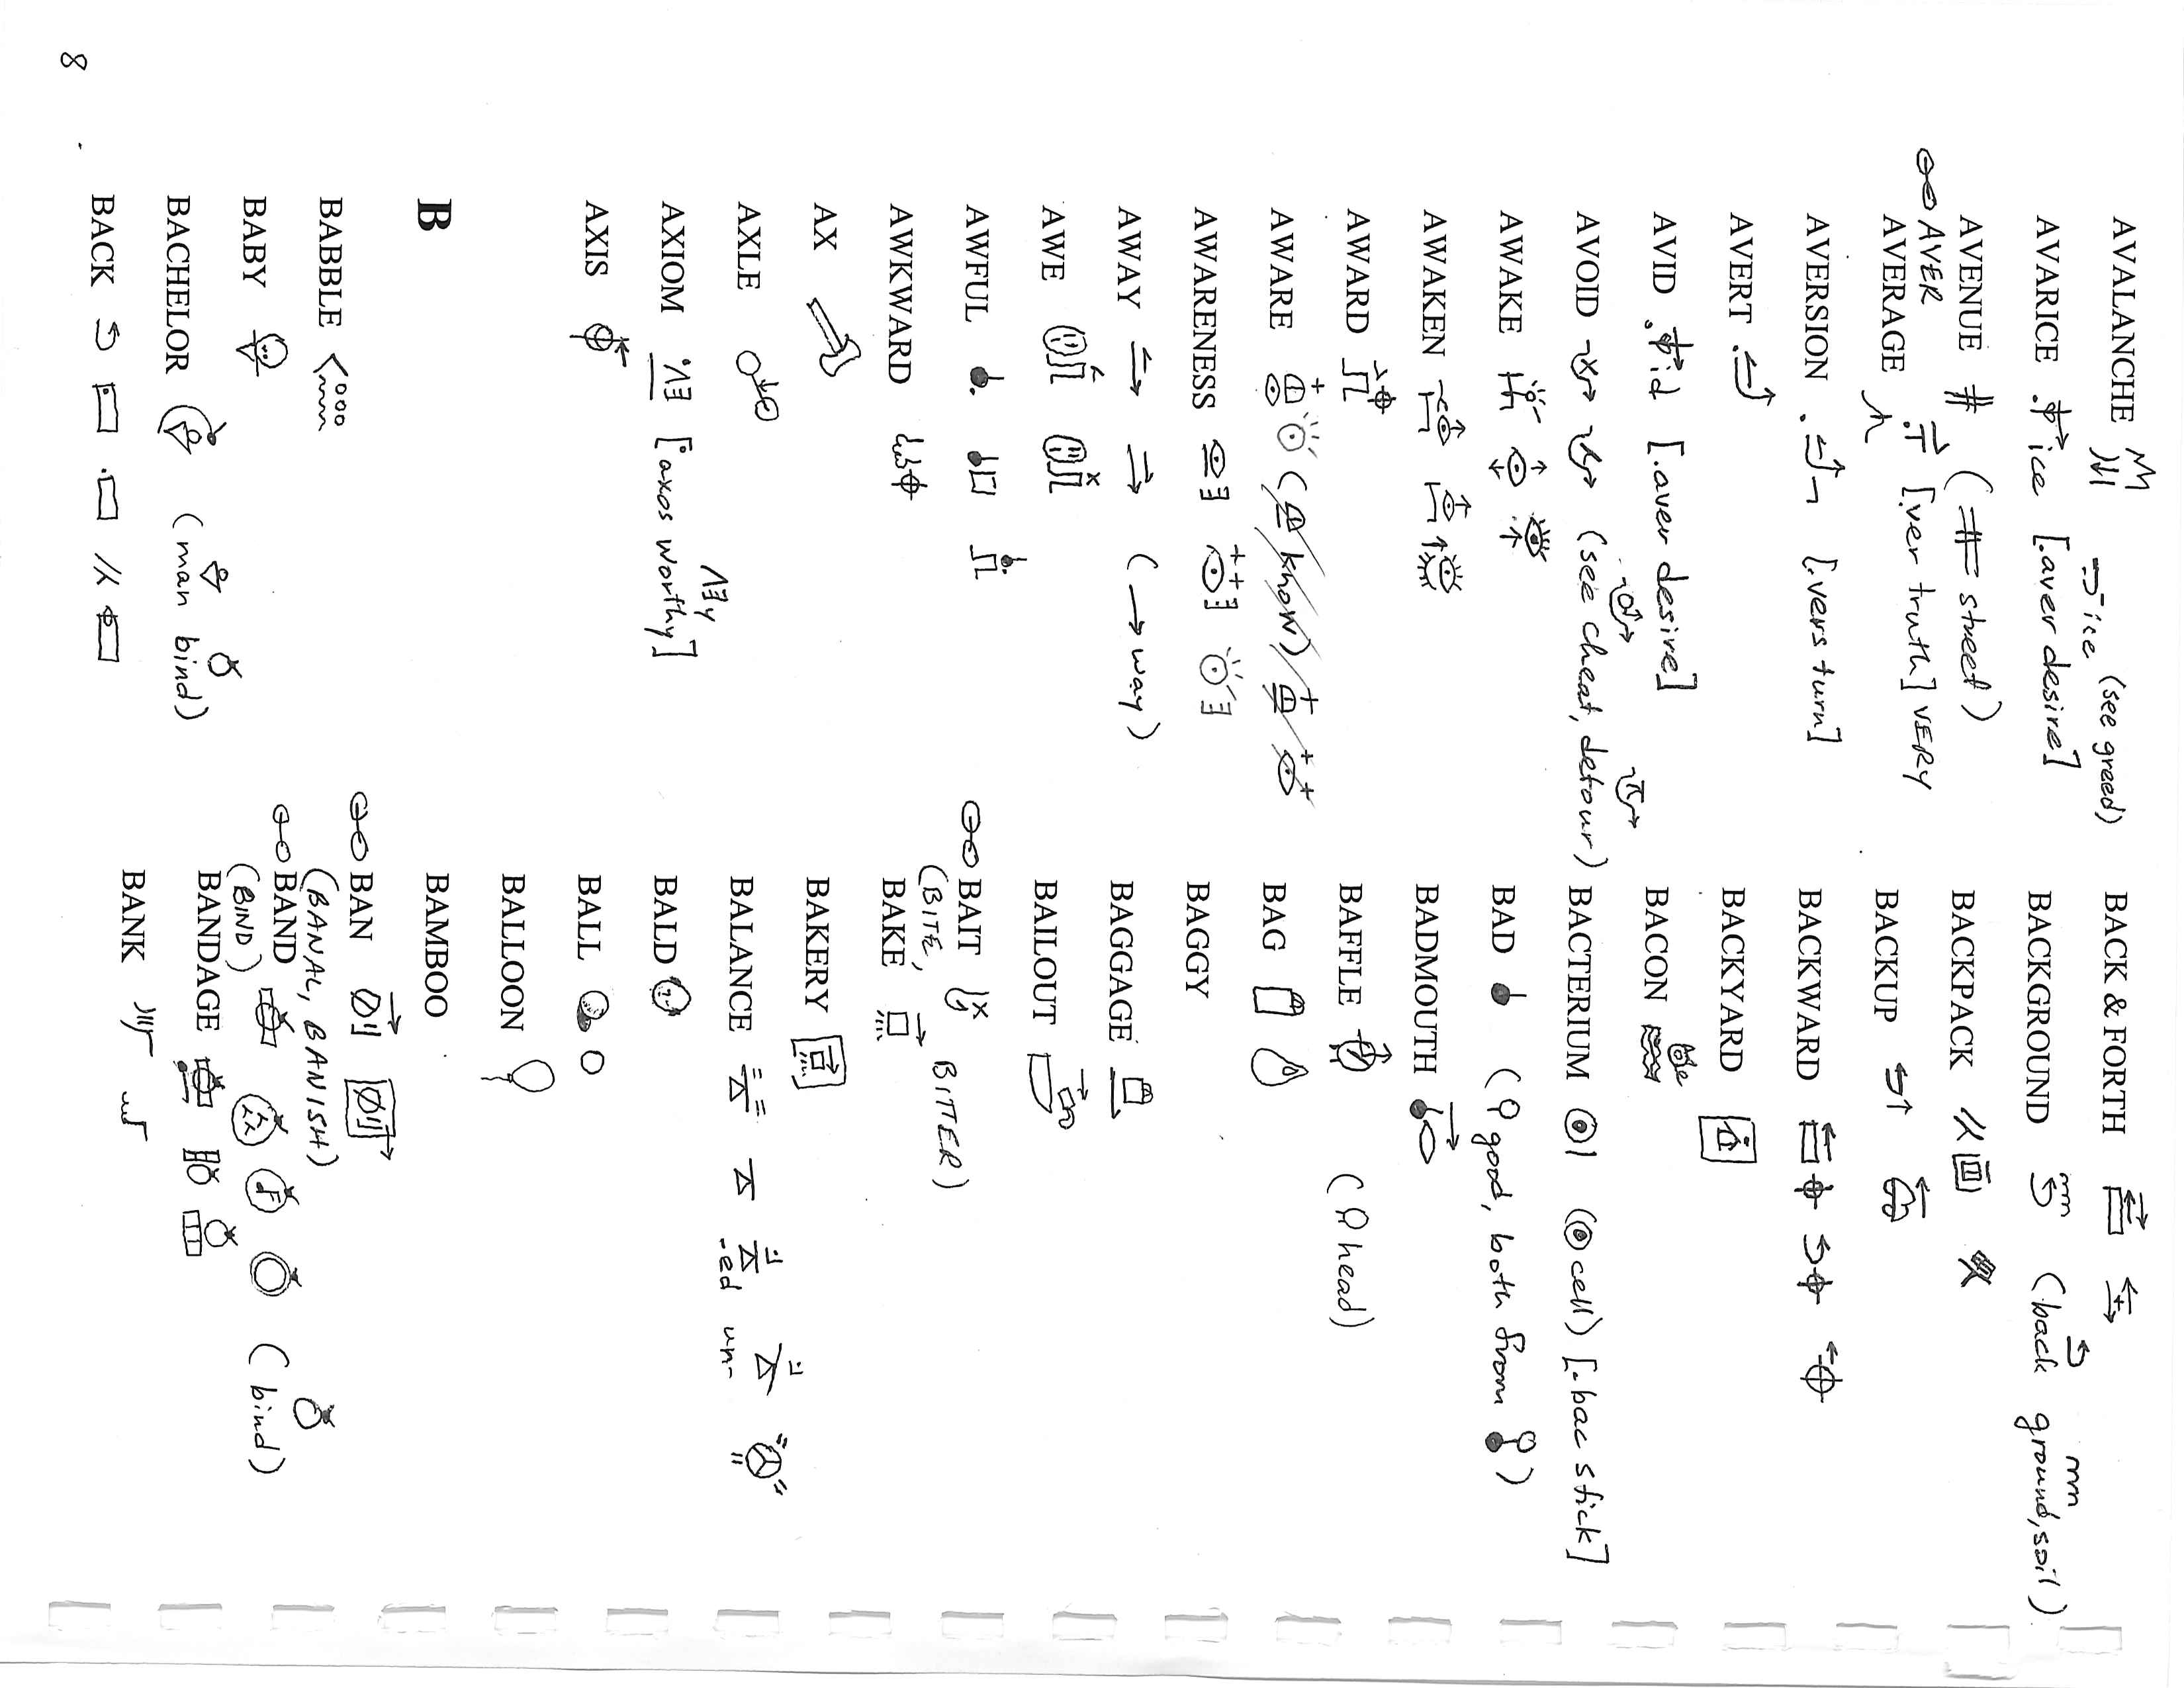 AVALANCHE
ice (see greed)
AVARICE ice [.aver desire]
AVENUE (street)
AVER [.ver truth] VERY
AVERAGE
AVERSION [.vers turn]
AVERT
AVID id [.aver desire]
AVOID (see cheat, detour)
AWAKE
AWAKEN
AWARD
AWARE (know)
AWARENESS
AWAY (→ way)
AWE
AWFUL
AWKWARD
AX
AXLE
AXIOM [axos worthy]
AXIS
B
BABBLE
BABY
BACHELOR (man bind)
BACK
BACK & FORTH
BACKGROUND (back ground, soil)
BACKPACK
BACKUP
BACKWARD
BACKYARD
BACON
BACTERIUM (cell) [.bac stick]
BAD (good, both from)
BADMOUTH
BAFFLE (head)
BAG
BAGGY
BAGGAGE
BAILOUT
BAIT
(BITE, BITTER)
BAKE
BAKERY
BALANCE
-ed un-
BALD
BALL
BALLOON
BAMBOO
BAN
(BANAL, BANISH)
BAND (bind)
(BIND)
BANDAGE
BANK
8